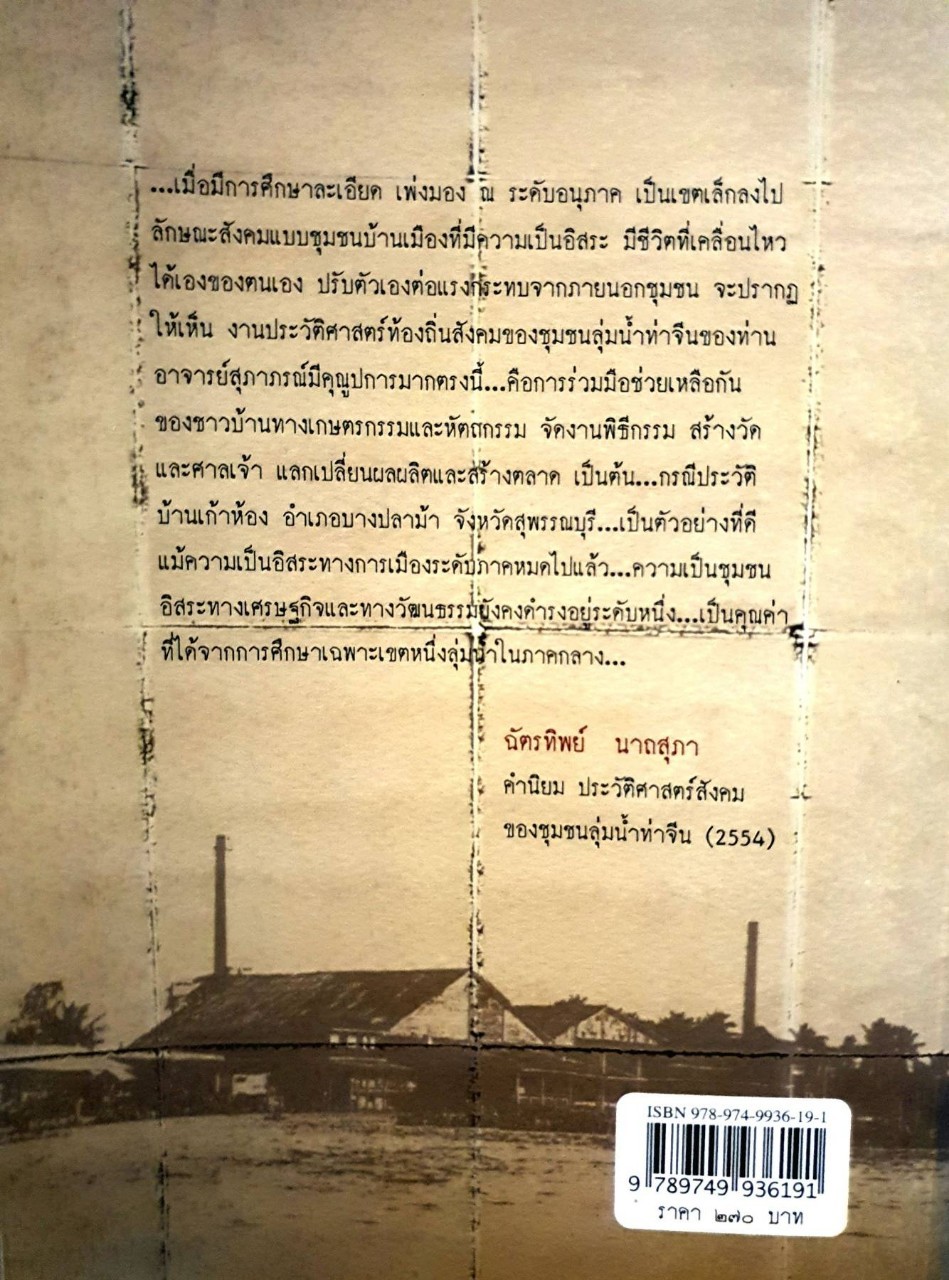 ...เมื่อมีการศึกษาละเอียด เพ่งมอง ณ ระดับอนุภาค เป็นเขตเล็กลงไป
ลักษณะสังคมแบบชุมชนบ้านเมืองที่มีความเป็นอิสระ มีชีวิตที่เคลื่อนไหว
ได้เองของตนเอง ปรับตัวเองต่อแรงกระทบจากภายนอกชุมชน จะปรากฏ
ให้เห็น งานประวัติศาสตร์ท้องถิ่นสังคมของชุมชนลุ่มน้ำท่าจีนของท่าน
อาจารย์สุภาภรณ์มีคุณูปการมากตรงนี้...คือการร่วมมือช่วยเหลือกัน
ของชาวบ้านทางเกษตรกรรมและหัตถกรรม จัดงานพิธีกรรม สร้างวัด
และศาลเจ้า แลกเปลี่ยนผลผลิตและสร้างตลาด เป็นต้น...กรณีประวัติ
บ้านเก้าห้อง อำเภอบางปลาม้า จังหวัดสุพรรณบุรี...เป็นตัวอย่างที่ดี
แม้ความเป็นอิสระทางการเมืองระดับภาคหมดไปแล้ว...ความเป็นชุมชน
อิสระทางเศรษฐกิจและทางวัฒนธรรมยังคงดำรงอยู่ระดับหนึ่ง...เป็นคุณค่า
ที่ได้จากการศึกษาเฉพาะเขตหนึ่งลุ่มน้ำในภาคกลาง...
ฉัตรทิพย์ นาถสุภา
คำนิยม ประวัติศาสตร์สังคม
ของชุมชนลุ่มน้ำท่าจีน (2554)
ISBN 978-974-9936-19-1
9 789749 936191
ราคา ๒๗๐ บาท